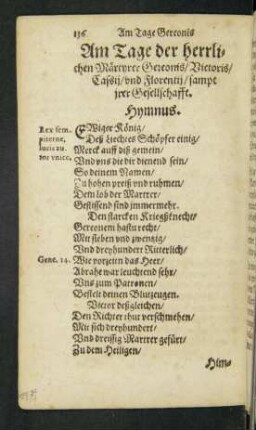 136 Am Tage Gereonis
Am Tage der herrli-
chen Märtyrer Gereonis/ Victoris/
Cassij/ vnd Florentij/ sampt
jrer Gesellschafft.
Hymnus.
Rex sem-
piterne,
lucis au-
tor vnice.
EWiger König/
Deß Liechtes Schöpfer einig/
Merck auff diß gemein/
Vnd vns die dir dienend sein/
So deinem Namen/
Zu hohen preiß vnd ruhmen/
Dem lob der Martrer/
Geflissend sind immermehr.
Den starcken Kriegßknecht/
Gereonem hastu recht/
Mit sieben vnd zwentzig/
Vnd dreyhundert Ritterlich/
Gene. 14. Wie vorzeitn das Heer/
Abrahe war leuchtend sehr/
Vns zum Patronen/
Bestelt deinen Blutzeugen.
Victor deßgleichen/
Den Richter thut verschmehen/
Mit sich dreyhundert/
Vnd dreissig Martrer gefürt/
Zu dem Heiligen/
Him-